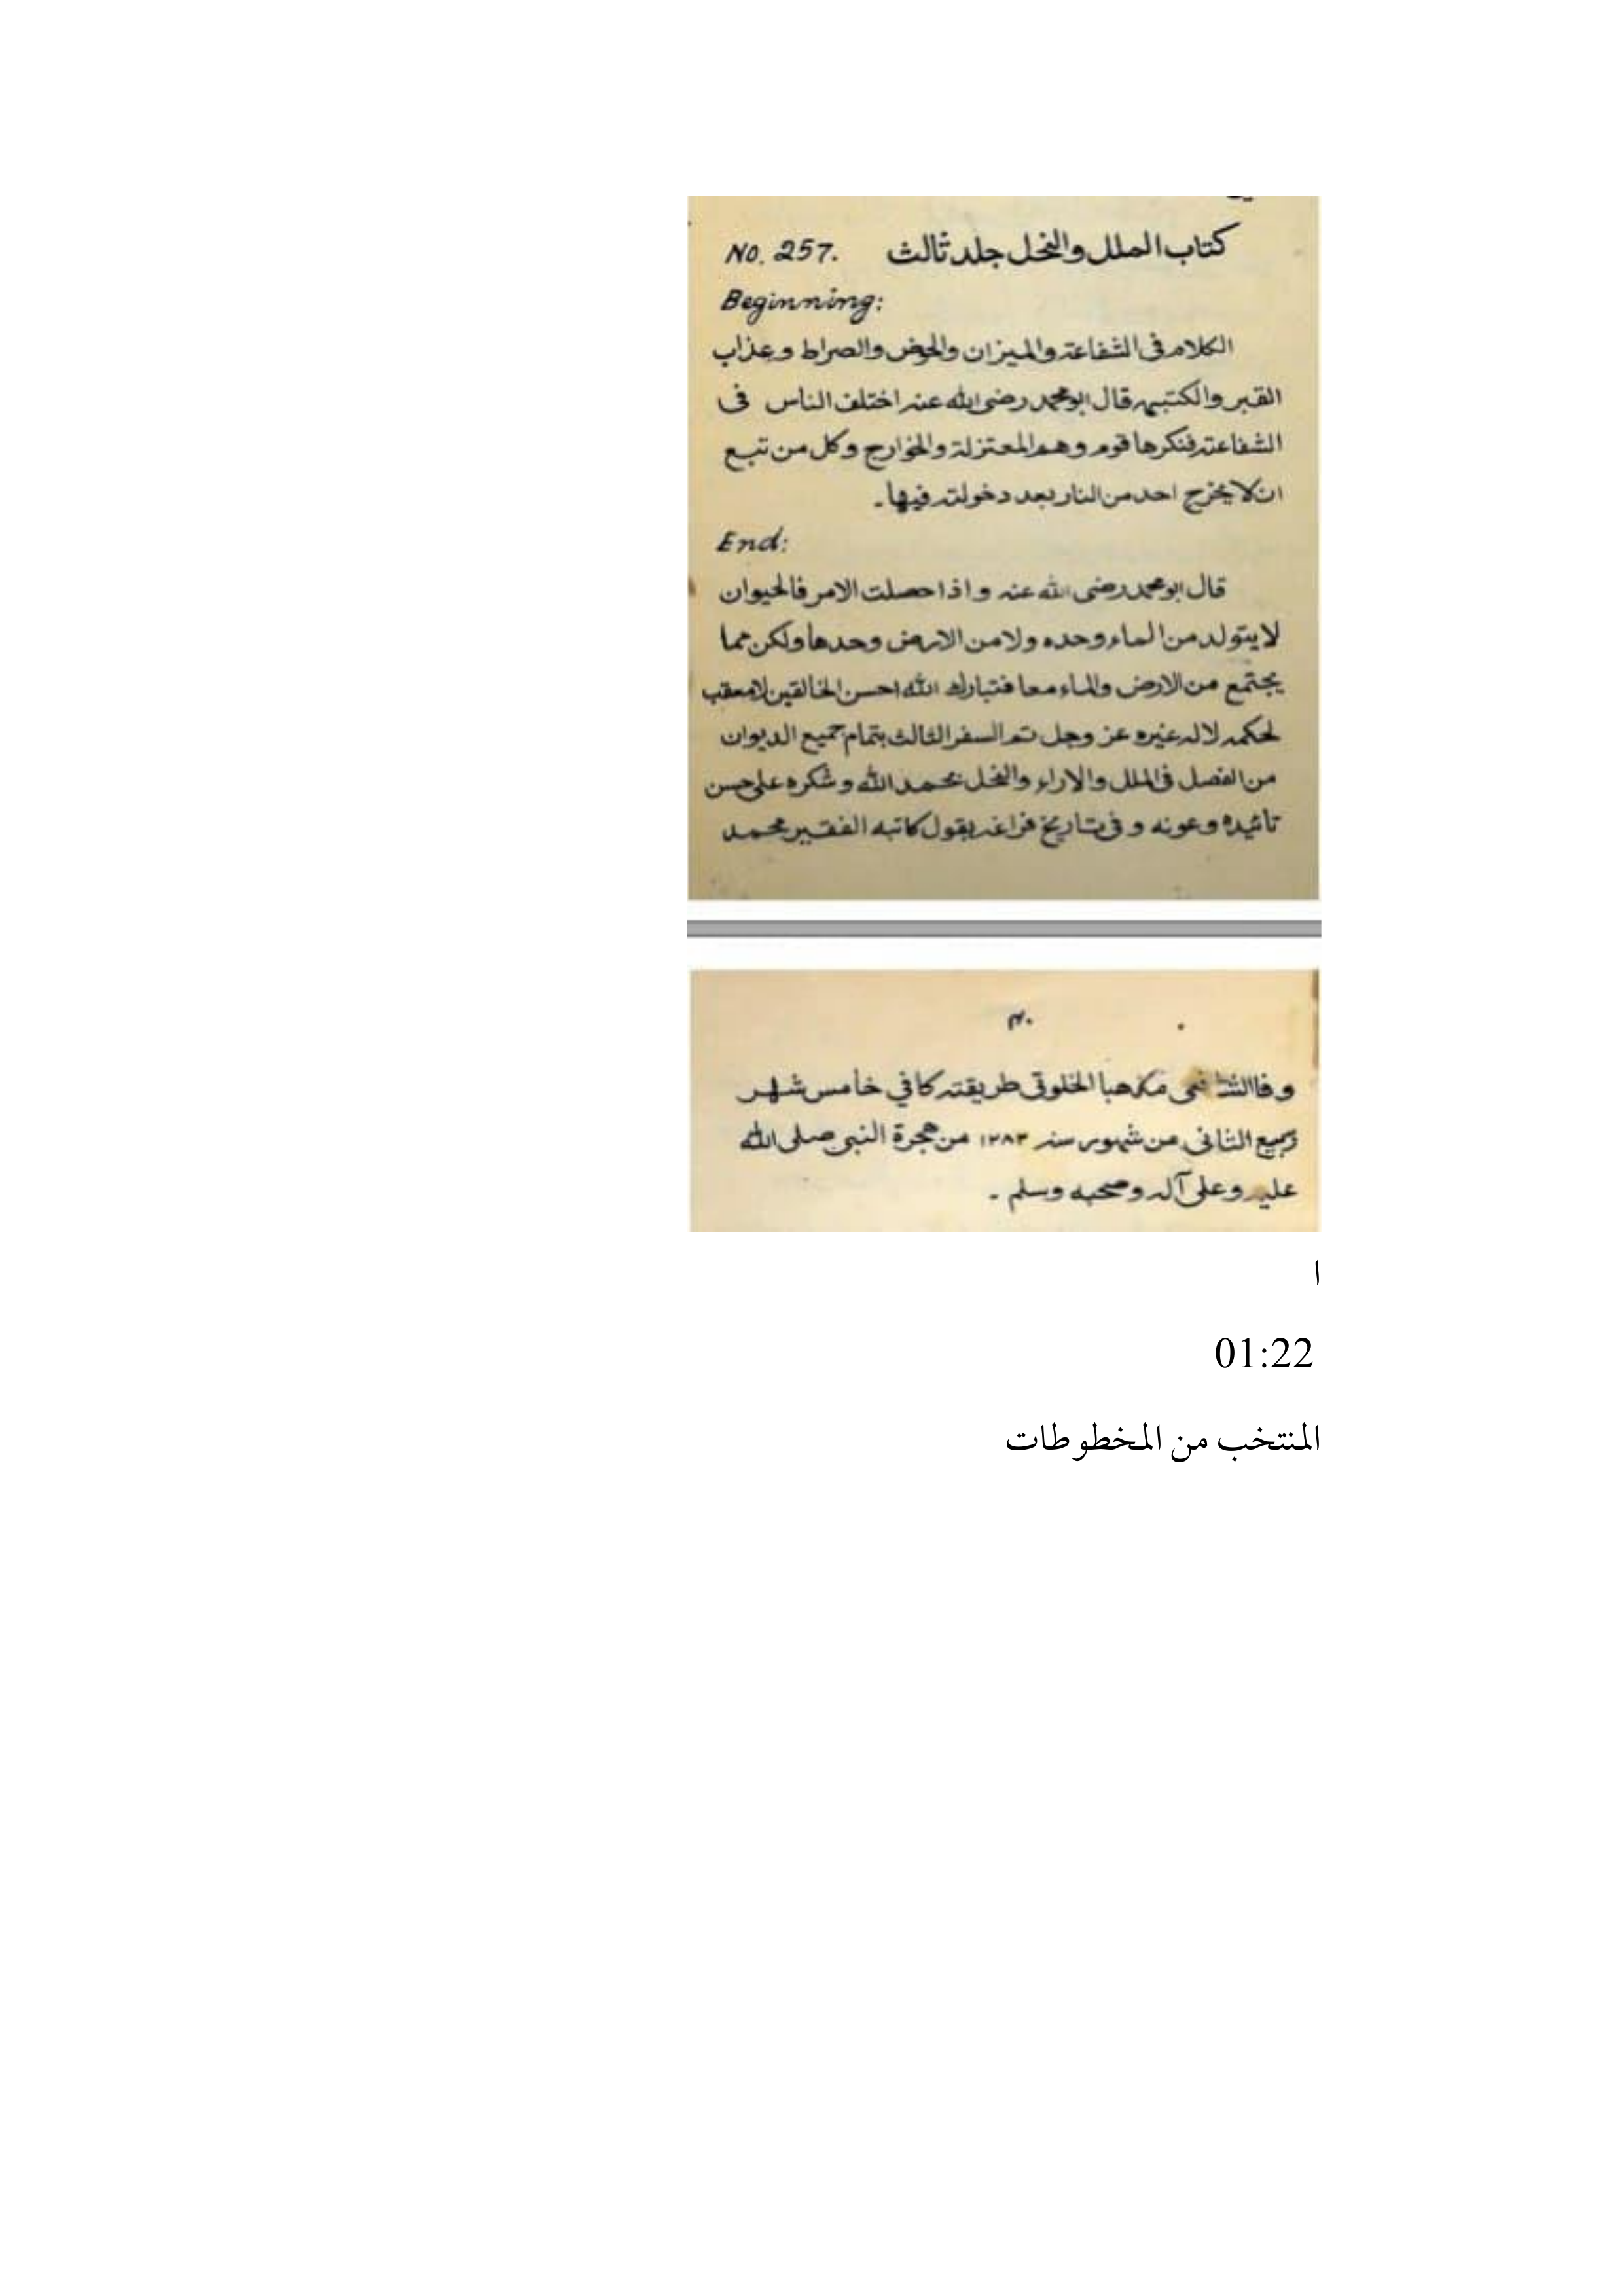 كتاب الملل والنحل جلد ثالث No. 257.
Beginning:
الكلام فى الشفاعة والميزان والحوض والصراط وعذاب
القبر والكتبه قال ابو محمد رضى الله عنه اختلف الناس فى
الشفاعة فنكرها قوم وهم المعتزلة والخوارج وكل من تبع
ان لا يخرج احد من النار بعد دخولته فيها۔
End:
قال ابو محمد رضى الله عنه واذا حصلت الامر فالحيوان
لا يتولد من الماء وحده ولا من الارض وحدها ولكن مما
يجتمع من الارض والماء معا فتبارك الله احسن الخالقين لا معقب
لحكمه لا اله غيره عز وجل تم السفر الثالث بتمام جميع الديوان
من الفصل فى الملل والاراء والنحل بحمد الله وشكره على حسن
تائيده وعونه وفى تاريخ فراغه يقول كاتبه الفقير محمد
وفا الشافعى مذهبا الخلوتى طريقته كافي خامس شهر
ربيع الثانى من شهور سنه ١٢٨٣ من هجرة النبى صلى الله
عليه وعلى آله وصحبه وسلم ۔
ا
01:22
المنتخب من المخطوطات